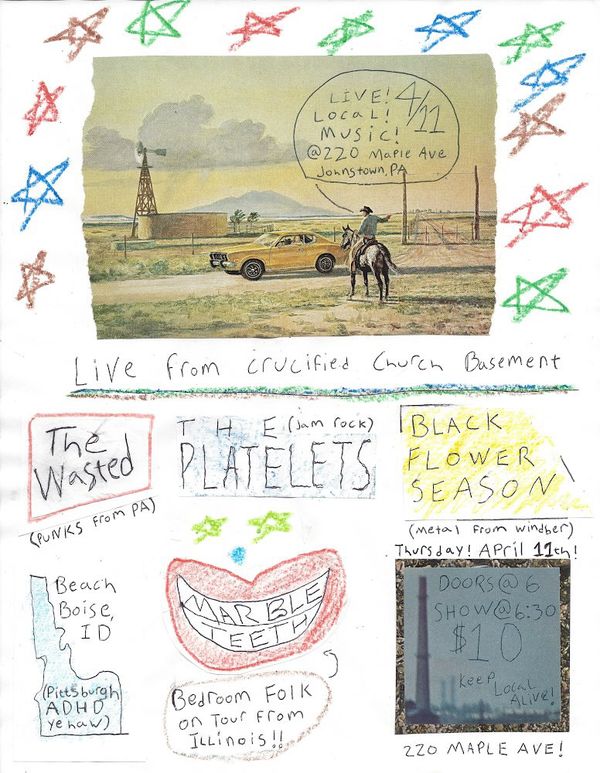 LIVE! 4/11
LOCAL!
MUSIC!
@220 Maple Ave
Johnstown, PA
Live from Crucified Church Basement
The
Wasted
(PUNKS from PA)
THE (Jam rock)
PLATELETS
BLACK
FLOWER
SEASON
(Metal from windber)
Thursday! April 11th!
Beach
Boise,
ID
(Pittsburgh
ADHD
yehaw)
MARBLE
TEETH
Bedroom Folk
on Tour From
Illinois!!
DOORS@6
SHOW@6:30
$10
Keep Local
Alive!
220 MAPLE AVE!